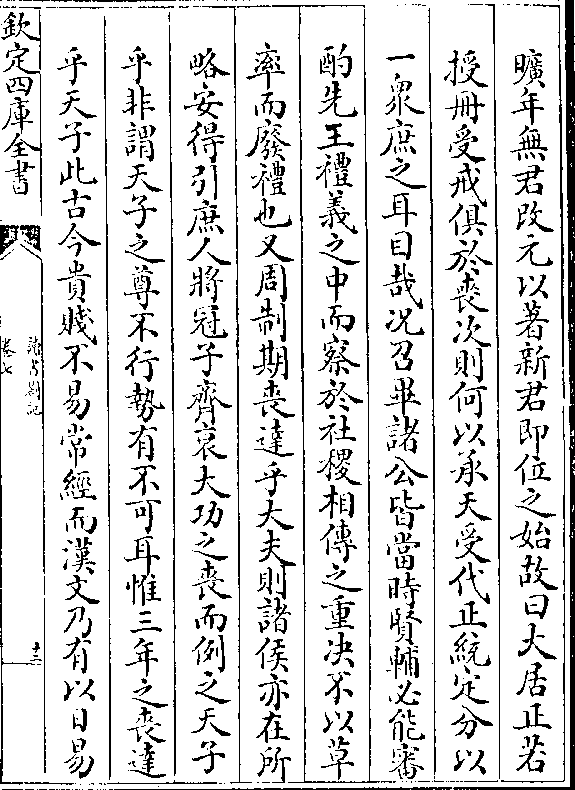 曠年無君改元以著新君即位之始故曰大居正若
授冊受戒俱於喪次則何以承天受代正統定分以
一衆庶之耳目哉况召畢諸公皆當時賢輔必能審
酌先王禮義之中而察於社稷相傳之重决不以草
率而廢禮也又周制期喪達乎大夫則諸侯亦在所
略安得引庶人將冠子齊衰大功之喪而例之天子
乎非謂天子之尊不行勢有不可耳惟三年之喪達
乎天子此古今貴賤不易常經而漢文乃有以日易
欽定四庫全書
卷七
十二